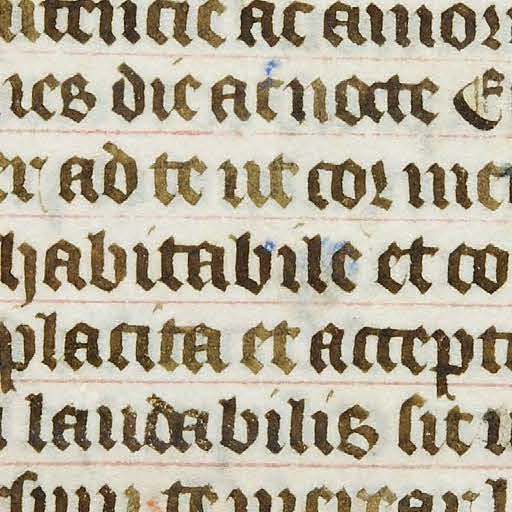 ac amor
ies die ac nocte E
er ad te ut cor me
habitabile et co
placita et accept
laudabilis sit
te